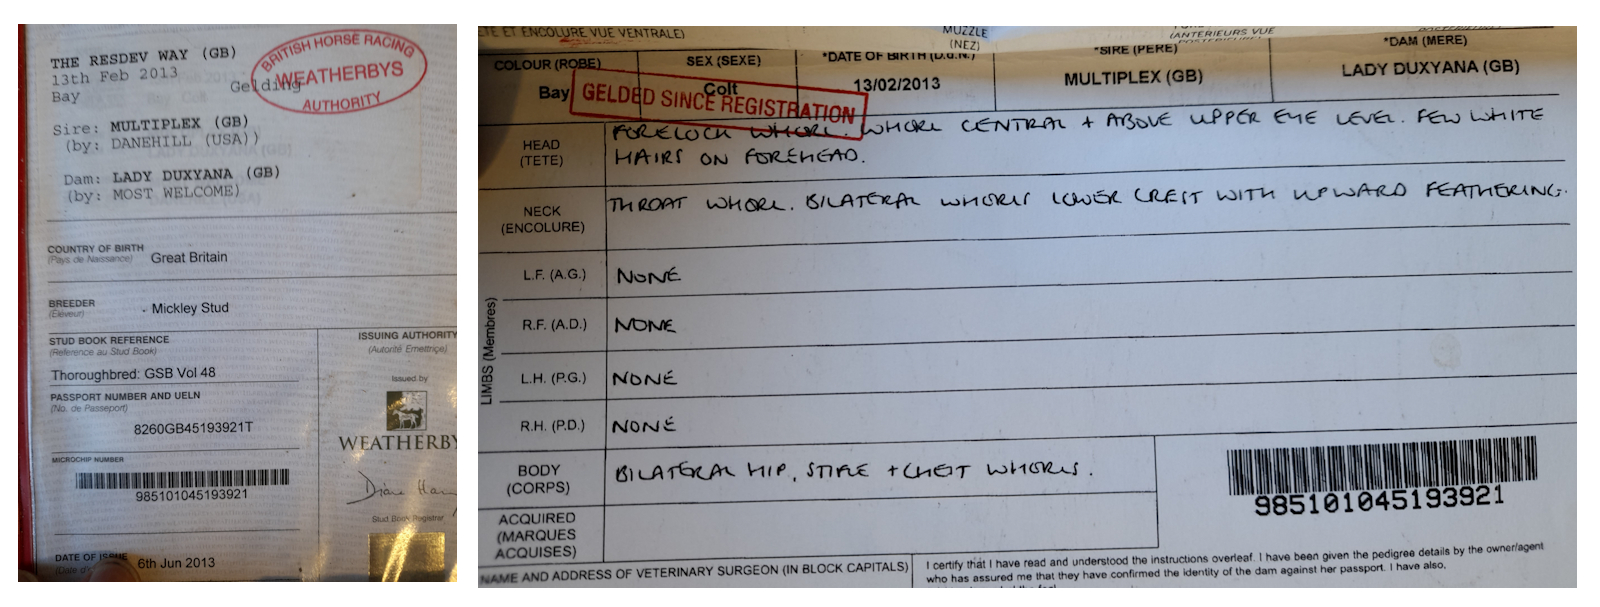 THE RESDEV WAY (GB)
13th Feb 2013
Gelding
Bay
BRITISH HORSE RACING
WEATHERBYS
AUTHORITY
Sire: MULTIPLEX (GB)
(by: DANEHILL (USA))
Dam: LADY DUXYANA (GB)
(by: MOST WELCOME)
COUNTRY OF BIRTH
(Pays de Naissance)
Great Britain
BREEDER
(Éleveur)
Mickley Stud
STUD BOOK REFERENCE
(Reference au Stud Book)
Thoroughbred: GSB Vol 48
PASSPORT NUMBER AND UELN
(No. de Passeport)
8260GB45193921T
MICROCHIP NUMBER
985101045193921
DATE OF ISSUE
6th Jun 2013
ISSUING AUTHORITY
(Autorité Emettrice)
Issued by
WEATHERBY
Diane
Stud Book Registrar
ENCOLURE VUE VENTRALE)
MUZZLE
(NEZ)
(ANTERIEURS VUE
COLOUR (ROBE)
Bay
SEX (SEXE)
Colt
GELDED SINCE REGISTRATION
*DATE OF BIRTH (D.d.N.)
13/02/2013
*SIRE (PERE)
MULTIPLEX (GB)
*DAM (MERE)
LADY DUXYANA (GB)
HEAD
(TETE)
FORELOCK WHORL. WHORL CENTRAL + ABOVE UPPER EYE LEVEL. FEW WHITE
HAIRS ON FOREHEAD.
NECK
(ENCOLURE)
THROAT WHORL. BILATERAL WHORLS LOWER CREST WITH UPWARD FEATHERING.
LIMBS (Membres)
L.F. (A.G.)
NONE
R.F. (A.D.)
NONE
L.H. (P.G.)
NONE
R.H. (P.D.)
NONE
BODY
(CORPS)
BILATERAL HIP, STIFLE + CHEST WHORLS.
985101045193921
ACQUIRED
(MARQUES
ACQUISES)
NAME AND ADDRESS OF VETERINARY SURGEON (IN BLOCK CAPITALS)
I certify that I have read and understood the instructions overleaf. I have been given the pedigree details by the owner/agent
who has assured me that they have confirmed the identity of the dam against her passport. I have also.